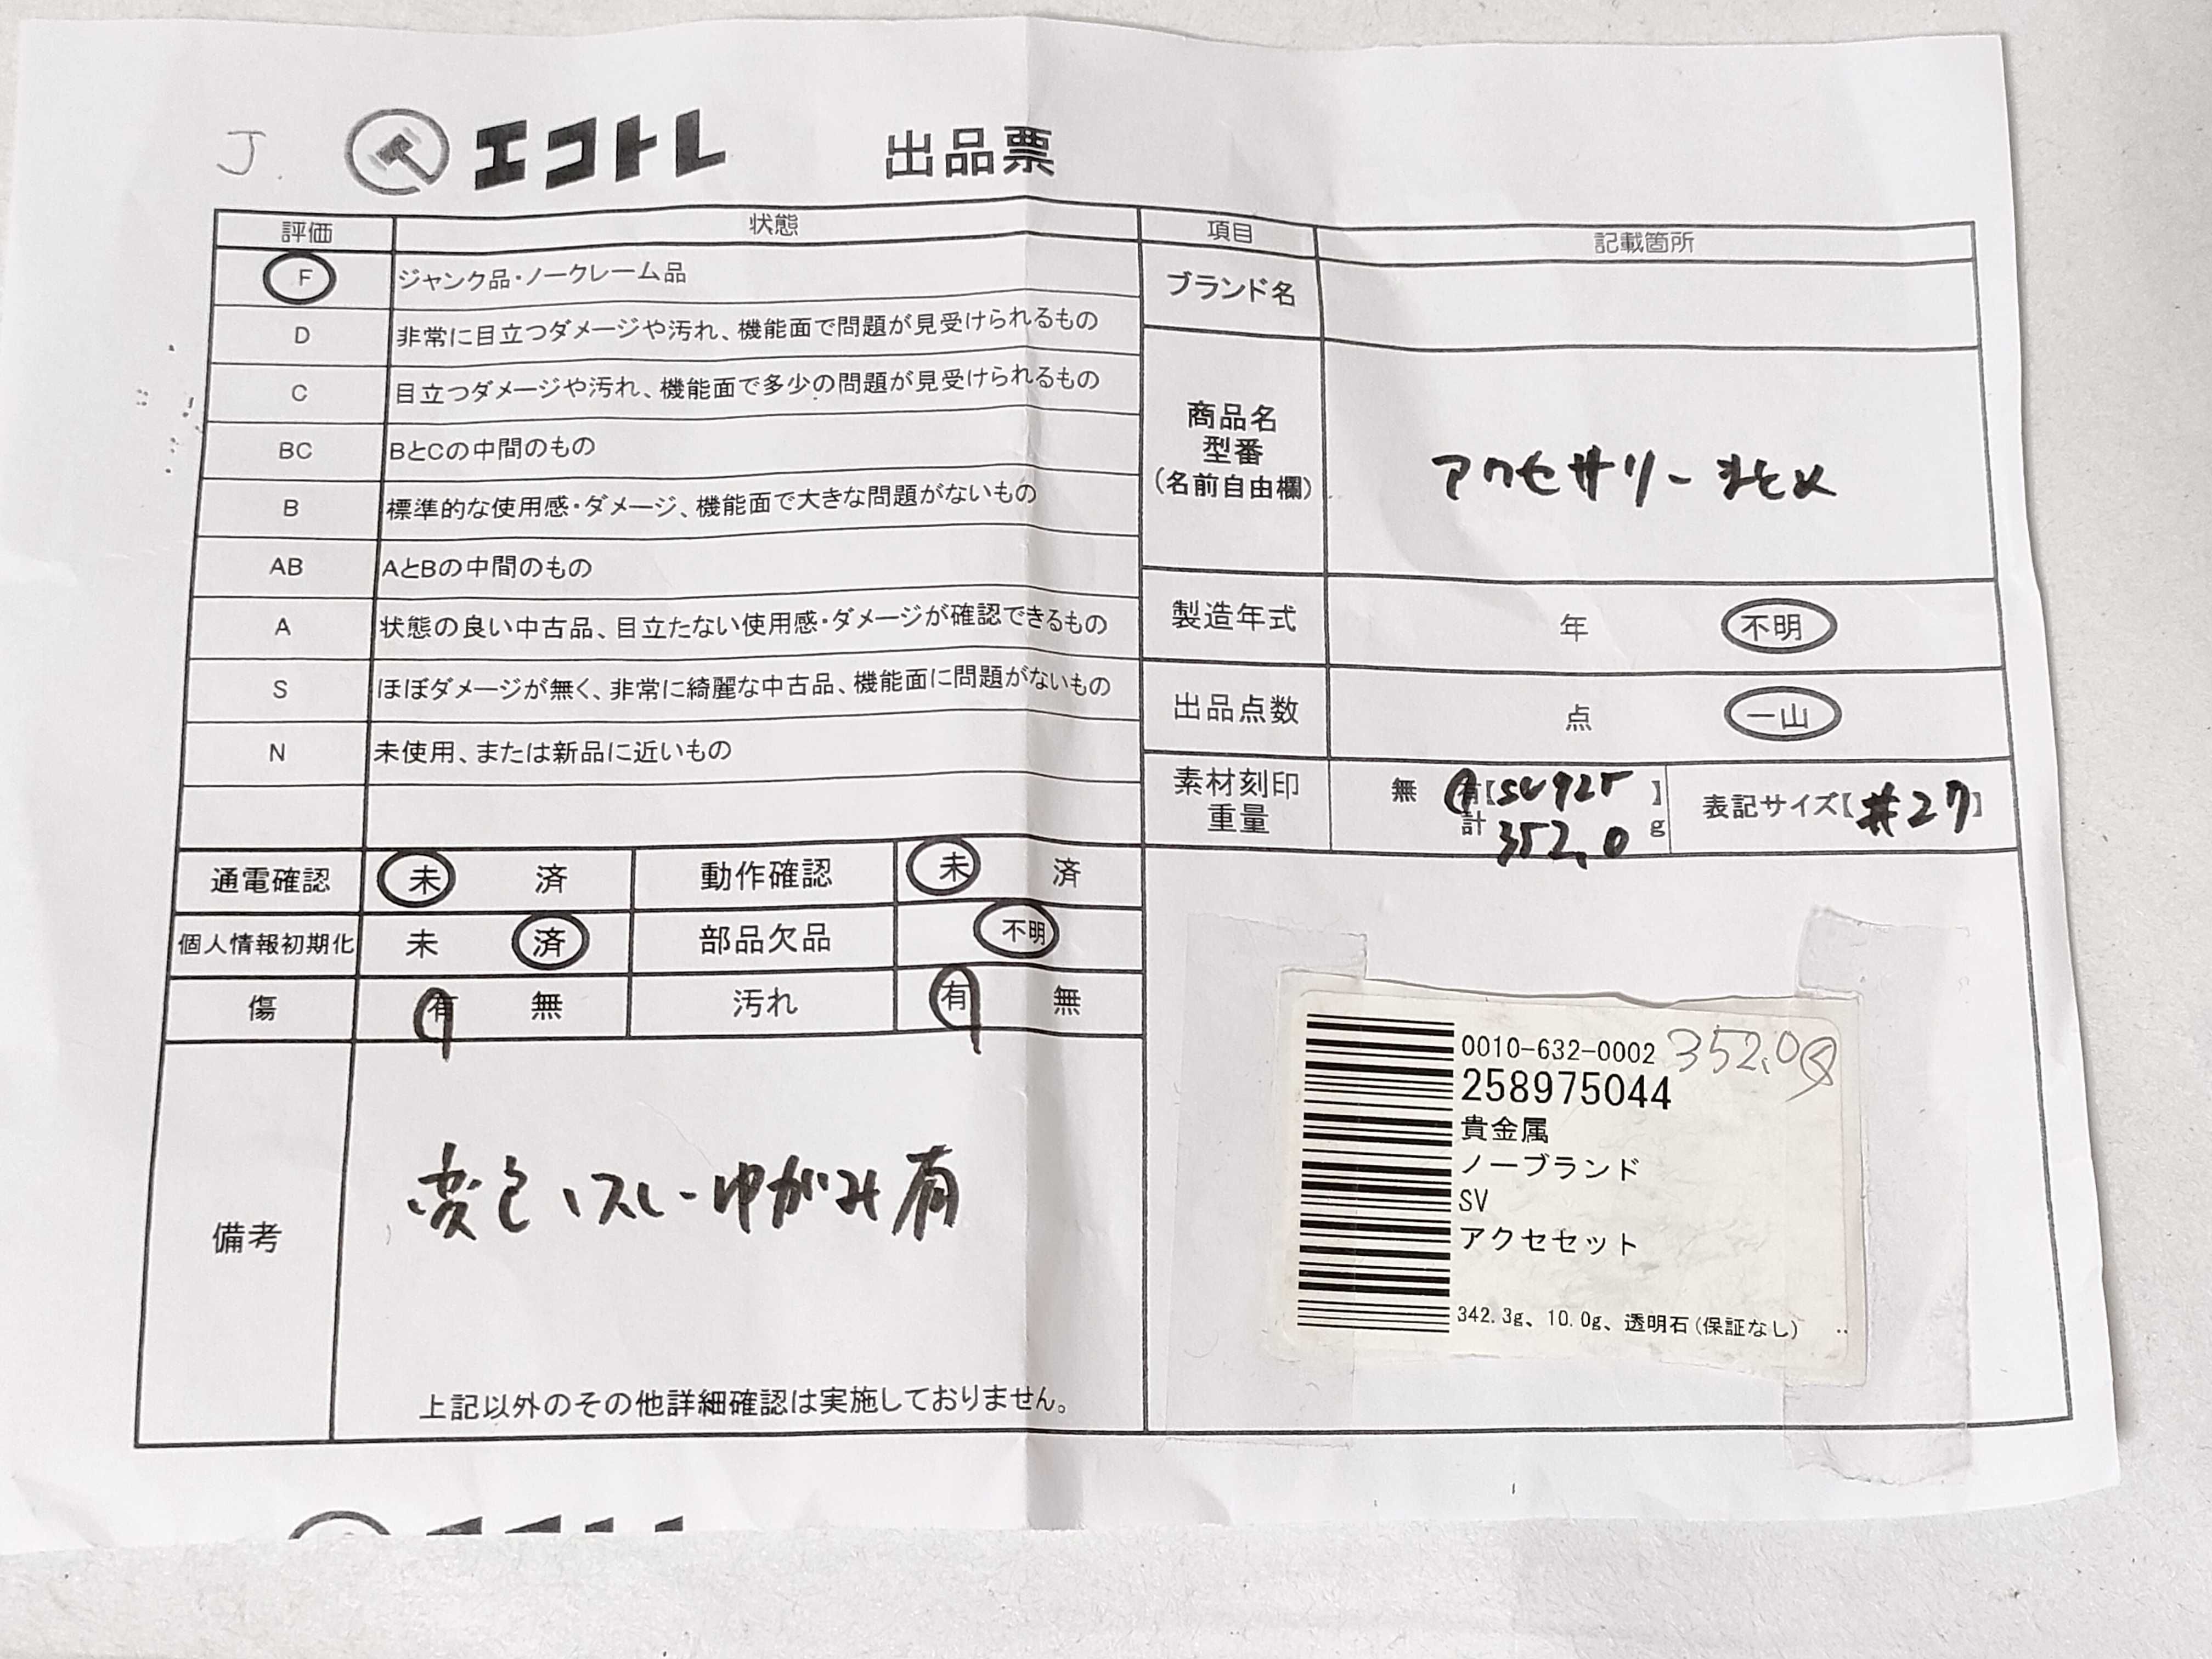 J.
エコトレ 出品票
評価 状態
F ジャンク品・ノークレーム品
D 非常に目立つダメージや汚れ、機能面で問題が見受けられるもの
C 目立つダメージや汚れ、機能面で多少の問題が見受けられるもの
BC BとCの中間のもの
B 標準的な使用感・ダメージ、機能面で大きな問題がないもの
AB AとBの中間のもの
A 状態の良い中古品、目立たない使用感・ダメージが確認できるもの
S ほぼダメージが無く、非常に綺麗な中古品、機能面に問題がないもの
N 未使用、または新品に近いもの
通電確認 未 済 動作確認 未 済
個人情報初期化 未 済 部品欠品 不明
傷 有 無 汚れ 有 無
備考
変色、スレ、ゆがみ有
上記以外のその他詳細確認は実施しておりません。
項目 記載箇所
ブランド名
商品名
型番
(名前自由欄)
アクセサリーまとめ
製造年式 年 不明
出品点数 点 一山
素材刻印 無 有【SV925】
重量 計 352.0 g
表記サイズ【#27】
0010-632-0002 352.0g
258975044
貴金属
ノーブランド
SV
アクセセット
342.3g、10.0g、透明石(保証なし) ..